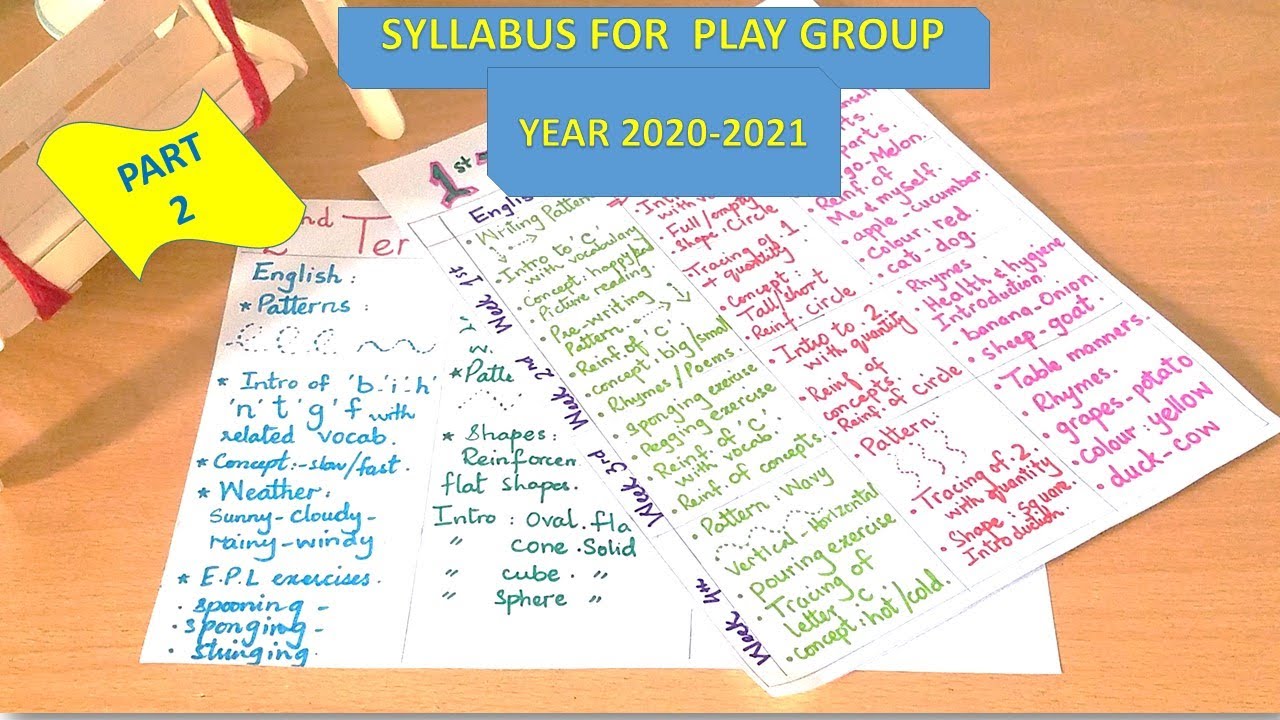 SYLLABUS FOR PLAY GROUP
YEAR 2020-2021
PART
2
nd Ter
English :
* Patterns :
* Intro of 'b-'i-'h'
'n' t' g' f with
related vocab.
* Concept :- slow/fast.
* Weather.
Sunny- cloudy-
rainy-windy
* E.P.L exercises.
• spooning -
• sponging -
• stringing.
w.
* Patte
* Shapes :
Reinforcen
flat shapes.
Intro : Oval. fla
" cone . Solid
" cube . "
" Sphere "
1st
Week 1st
Week 2nd
Week 3rd
Week 4th
Englis
• Writing Pattern
• Intro to 'C'
with vocabulary
• Concept : happy/sad
• Picture reading.
• Pre-writing
Pattern.
• Reinf. of 'C'
• concept : big/small
• Rhymes / Poems.
• Sponging exercise
• Pegging exercise
• Reinf. of 'C'
with vocab.
• Reinf. of concepts.
• Pattern : Wavy
Vertical - Horizontal
• pouring exercise
• Tracing of
letter 'C'
• concept : hot/cold.
with
Full/empty
Shape : Circle
• Tracing of 1
+ quantity
• Concept :
Tall/short
• Reinf. circle
• Intro to 2
with quantity
• Reinf. of
concepts.
• Reinf. of circle
• Pattern
• Tracing of 2.
with quantity
• Shape : Square.
Introduction.
parts.
go-Melon.
• Reinf. of
Me & myself.
• apple - cucumber.
• colour : red
• cat - dog.
• Rhymes
• Health & hygiene
Introduction.
• banana - Onion.
• sheep - goat.
• Table manners.
• Rhymes.
• grapes - potato
• colour : yellow
• duck - cow